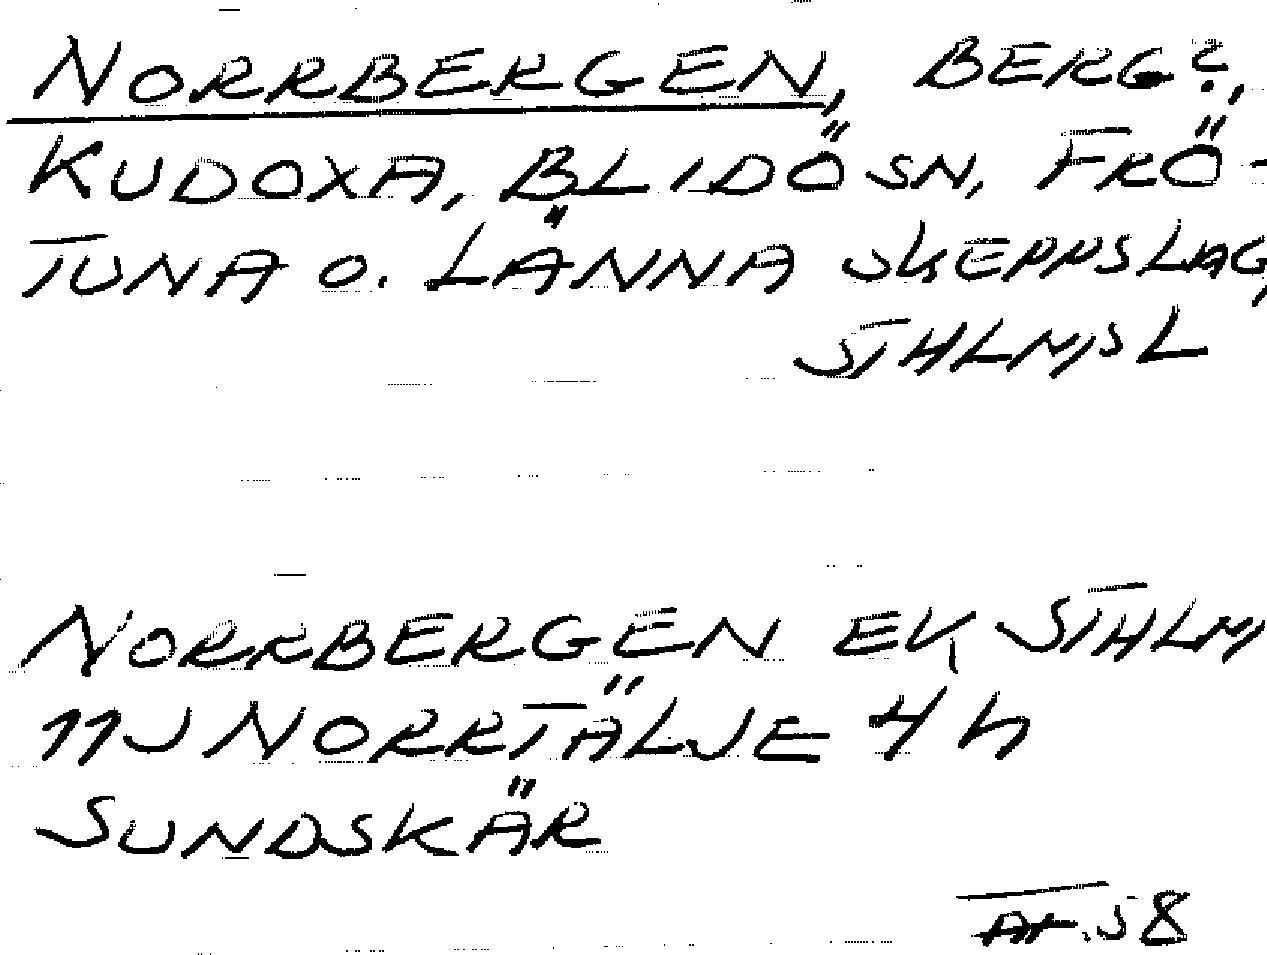 NORRBERGEN, BERG?,
KUDOXA, BLIDÖ SN, FRÖ-
TUNA O. LÄNNA SKEPPSLAG,
STHLMS L
NORRBERGEN EK STHLM
11J NORRTÄLJE 4 h
SUNDSKÄR
58